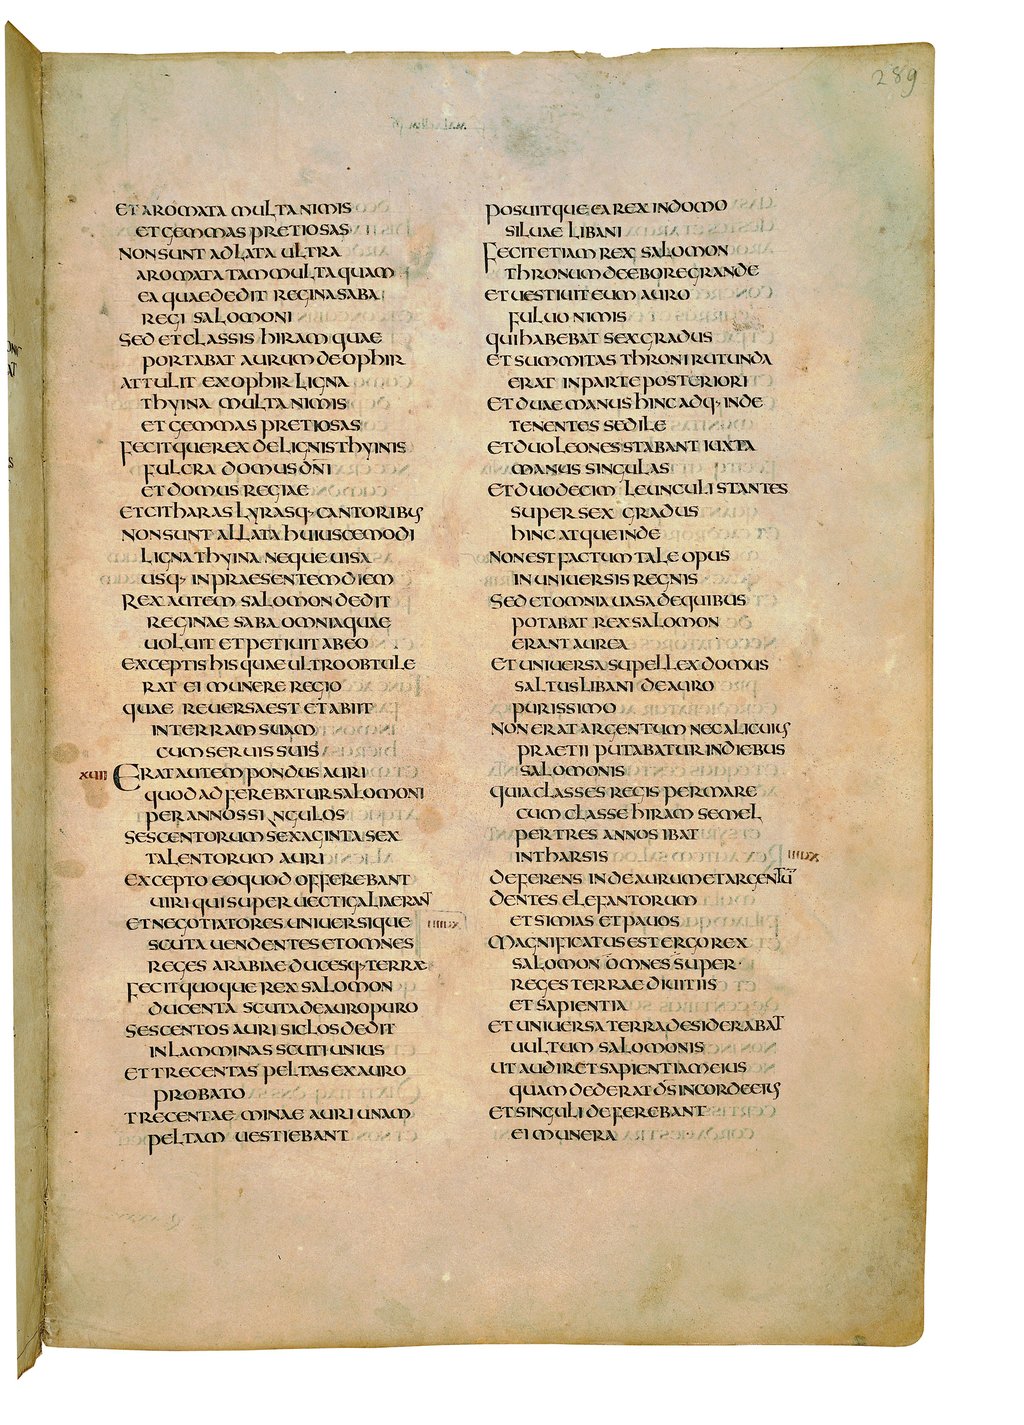 289
ET AROMATA MULTA NIMIS
ET GEMMAS PRETIOSAS
NON SUNT ADLATA ULTRA
AROMATA TAM MULTA QUAM
EA QUAE DEDIT REGINA SABA
REGI SALOMONI
SED ET CLASSIS HIRAM QUAE
PORTABAT AURUM DE OPHIR
ATTULIT EX OPHIR LIGNA
THYINA MULTA NIMIS
ET GEMMAS PRETIOSAS
FECITQUE REX DE LIGNIS THYINIS
FULCRA DOMUS DNI
ET DOMUS REGIAE
ET CITHARAS LYRASQ· CANTORIBUS
NON SUNT ALLATA HUIUSCEMODI
LIGNA THYINA NEQUE UISA
USQ· IN PRAESENTEM DIEM
REX AUTEM SALOMON DEDIT
REGINAE SABA OMNIA QUAE
UOLUIT ET PETIUIT AB EO
EXCEPTIS HIS QUAE ULTRO OBTULE
RAT EI MUNERE REGIO
QUAE REUERSA EST ET ABIIT
IN TERRAM SUAM
CUM SERUIS SUIS
XUIII ERAT AUTEM PONDUS AURI
QUOD ADFEREBATUR SALOMONI
PER ANNOS SINGULOS
SESCENTORUM SEXAGINTA SEX
TALENTORUM AURI
EXCEPTO EO QUOD OFFEREBANT
UIRI QUI SUPER UECTIGALIA ERANT
ET NEGOTIATORES UNIUERSIQUE
SCUTA UENDENTES ET OMNES
REGES ARABIAE DUCESQ· TERRAE
FECIT QUOQUE REX SALOMON
DUCENTA SCUTA DE AURO PURO
SESCENTOS AURI SICLOS DEDIT
IN LAMMINAS SCUTI UNIUS
ET TRECENTAS PELTAS EX AURO
PROBATO
TRECENTAE MINAE AURI UNAM
PELTAM UESTIEBANT
POSUITQUE EA REX IN DOMO
SILUAE LIBANI
FECIT ETIAM REX SALOMON
THRONUM DE EBORE GRANDE
ET UESTIUIT EUM AURO
FULUO NIMIS
QUI HABEBAT SEX GRADUS
ET SUMMITAS THRONI RUTUNDA
ERAT IN PARTE POSTERIORI
ET DUAE MANUS HINC ADQ· INDE
TENENTES SEDILE
ET DUO LEONES STABANT IUXTA
MANUS SINGULAS
ET DUODECIM LEUNCULI STANTES
SUPER SEX GRADUS
HINC ATQUE INDE
NON EST FACTUM TALE OPUS
IN UNIUERSIS REGNIS
SED ET OMNIA UASA DE QUIBUS
POTABAT REX SALOMON
ERANT AUREA
ET UNIUERSA SUPELLEX DOMUS
SALTUS LIBANI DE AURO
PURISSIMO
NON ERAT ARGENTUM NEC ALICUIUS
PRAETII PUTABATUR IN DIEBUS
SALOMONIS
QUIA CLASSES REGIS PER MARE
CUM CLASSE HIRAM SEMEL
PER TRES ANNOS IBAT
IN THARSIS
DEFERENS INDE AURUM ET ARGENTŪ
DENTES ELEFANTORUM
ET SIMIAS ET PAUOS
MAGNIFICATUS EST ERGO REX
SALOMON OMNES SUPER
REGES TERRAE DIUITIIS
ET SAPIENTIA
ET UNIUERSA TERRA DESIDERABAT
UULTUM SALOMONIS
UT AUDIRET SAPIENTIAM EIUS
QUAM DEDERAT DS IN CORDE EIUS
ET SINGULI DEFEREBANT
EI MUNERA